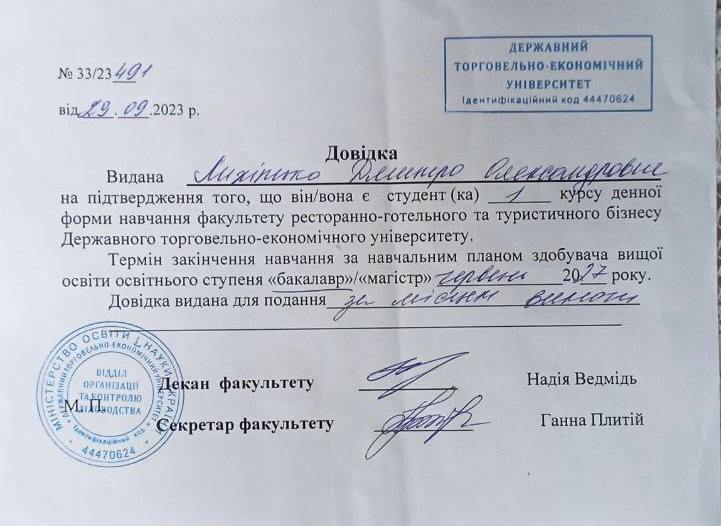 ДЕРЖАВНИЙ
ТОРГОВЕЛЬНО-ЕКОНОМІЧНИЙ
УНІВЕРСИТЕТ
Ідентифікаційний код 44470624
№ 33/23 491
від 29.09.2023 р.
Довідка
Видана Дмитро Олександрович
на підтвердження того, що він/вона є студент (ка) 1 курсу денної
форми навчання факультету ресторанно-готельного та туристичного бізнесу
Державного торговельно-економічного університету.
Термін закінчення навчання за навчальним планом здобувача вищої
освіти освітнього ступеня «бакалавр»/«магістр» червень 2027 року.
Довідка видана для подання за місцем вимоги
МІНІСТЕРСТВО ОСВІТИ І НАУКИ УКРАЇНИ
ДЕРЖАВНИЙ ТОРГОВЕЛЬНО-ЕКОНОМІЧНИЙ УНІВЕРСИТЕТ
ВІДДІЛ
ОРГАНІЗАЦІЇ
ТА КОНТРОЛЮ
ДІЛОВОДСТВА
Ідентифікаційний код
44470624
М.П.
Декан факультету Надія Ведмідь
Секретар факультету Ганна Плитій